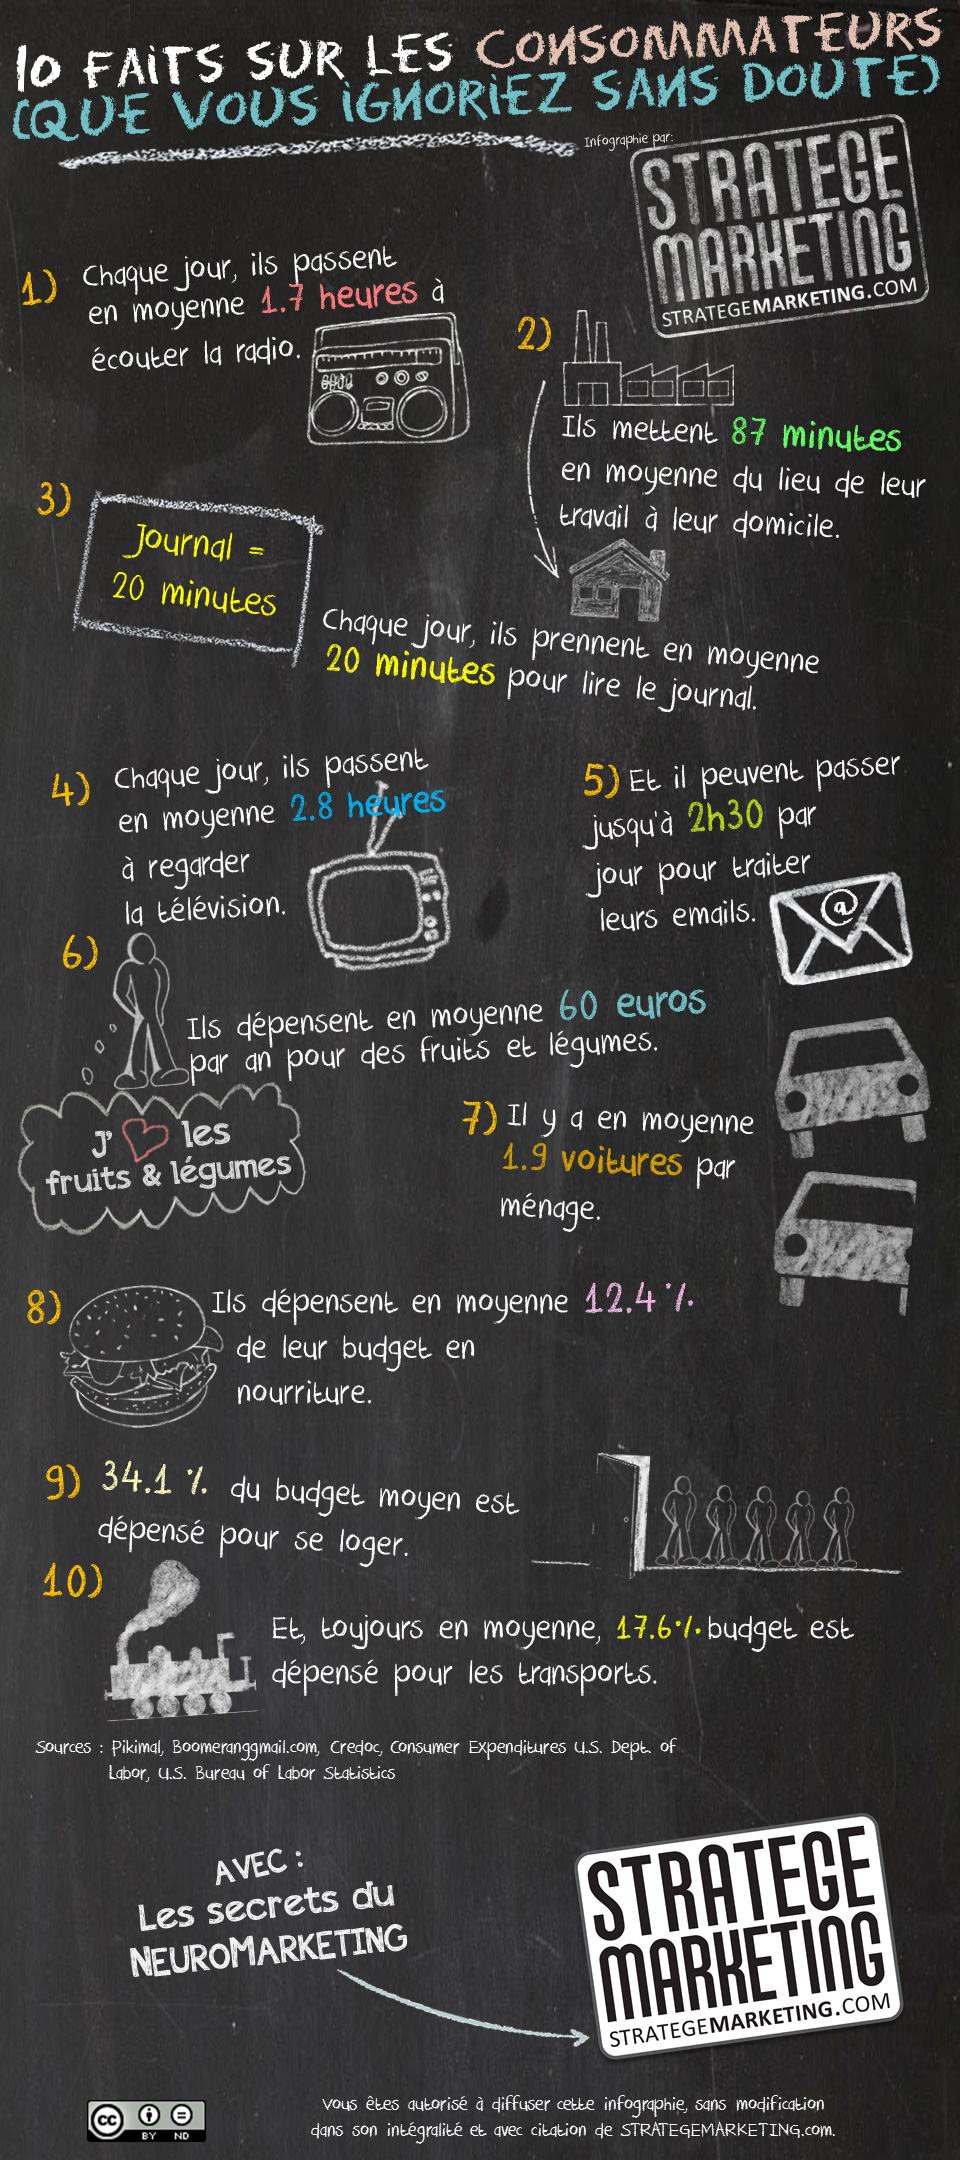 10 FAITS SUR LES CONSOMMATEURS
(QUE VOUS IGNORIEZ SANS DOUTE)
Infographie par:
STRATEGE
MARKETING
STRATEGEMARKETING.COM
1) Chaque jour, ils passent
en moyenne 1.7 heures à
écouter la radio.
2)
Ils mettent 87 minutes
en moyenne du lieu de leur
travail à leur domicile.
3)
Journal =
20 minutes
Chaque jour, ils prennent en moyenne
20 minutes pour lire le journal.
4) Chaque jour, ils passent
en moyenne 2.8 heures
à regarder
la télévision.
5) Et il peuvent passer
jusqu'à 2h30 par
jour pour traiter
leurs emails.
@
6)
Ils dépensent en moyenne 60 euros
par an pour des fruits et légumes.
J' les
fruits & légumes
7) Il y a en moyenne
1.9 voitures par
ménage.
8) Ils dépensent en moyenne 12.4 %
de leur budget en
nourriture.
9) 34.1 % du budget moyen est
dépensé pour se loger.
10)
Et, toujours en moyenne, 17.6% budget est
dépensé pour les transports.
Sources : Pikimal, Boomeranggmail.com, Credoc, Consumer Expenditures U.S. Dept. of
Labor, U.S. Bureau of Labor Statistics
AVEC :
Les secrets du
NEUROMARKETING
STRATEGE
MARKETING
STRATEGEMARKETING.COM
cc BY ND
Vous êtes autorisé à diffuser cette infographie, sans modification
dans son intégralité et avec citation de STRATEGEMARKETING.com.